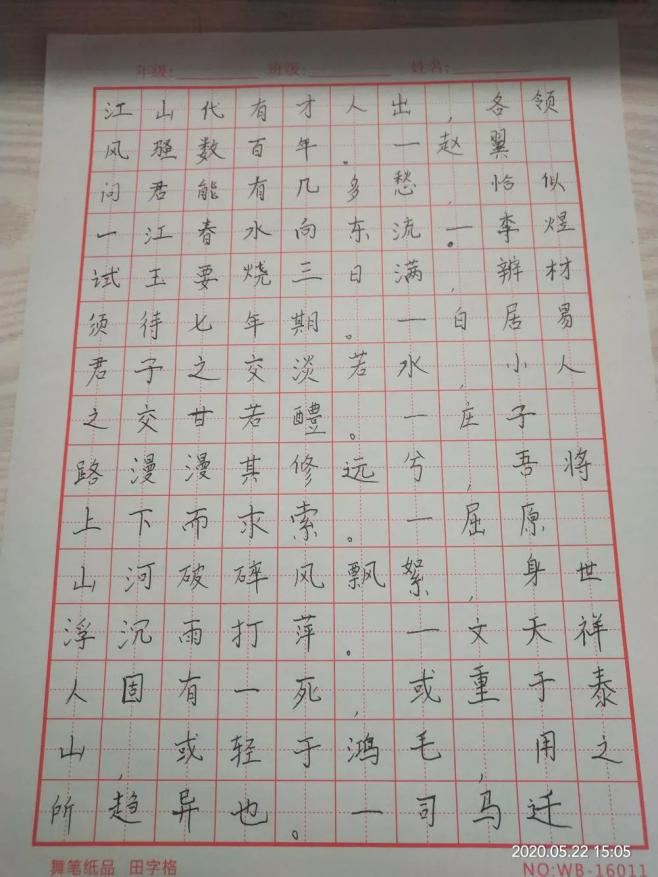 年级: 班级: 姓名:
江山代有才人出，各领
风骚数百年。一赵翼
问君能有几多愁，恰似
一江春水向东流。一李煜
试玉要烧三日满，辨材
须待七年期。一白居易
君子之交淡若水，小人
之交甘若醴。一庄子
路漫漫其修远兮，吾将
上下而求索。一屈原
山河破碎风飘絮，身世
浮沉雨打萍。一文天祥
人固有一死，或重于泰
山，或轻于鸿毛，用之
所趋异也。一司马迁
2020.05.22 15:05
舞笔纸品 田字格 NO:WB-16011